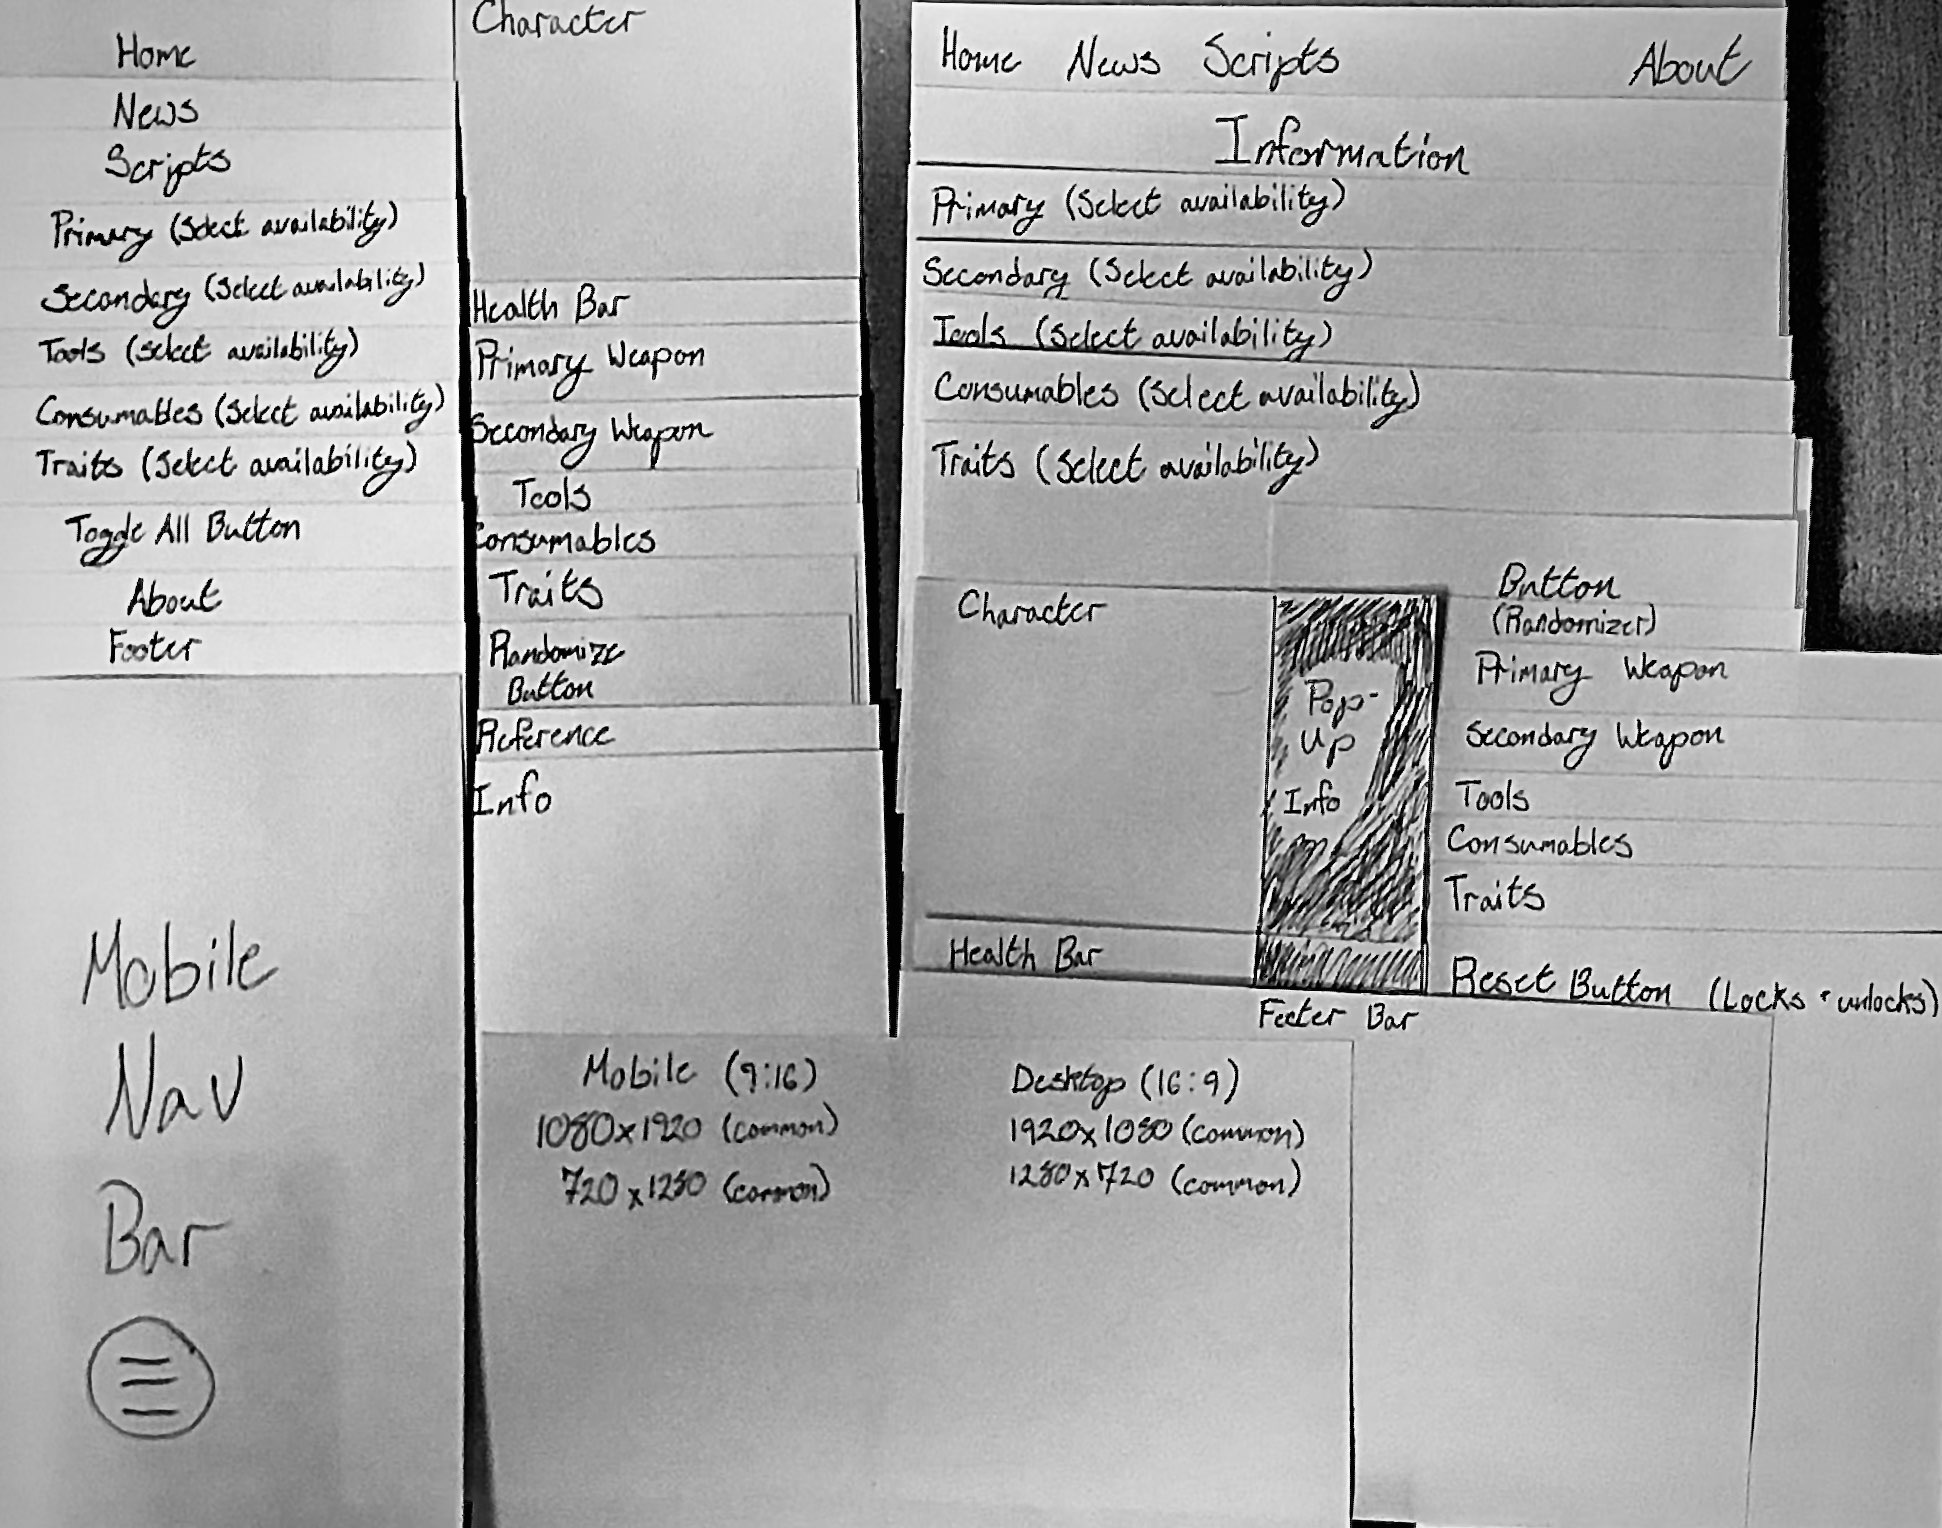 Home
News
Scripts
Primary (Select availability)
Secondary (Select availability)
Tools (Select availability)
Consumables (Select availability)
Traits (Select availability)
Toggle All Button
About
Footer
Mobile
Nav
Bar
Character
Health Bar
Primary Weapon
Secondary Weapon
Tools
Consumables
Traits
Randomize
Button
Reference
Info
Home News Scripts About
Information
Primary (Select availability)
Secondary (Select availability)
Tools (Select availability)
Consumables (Select availability)
Traits (Select availability)
Character
Health Bar
Pop-
Up
Info
Button
(Randomizer)
Primary Weapon
Secondary Weapon
Tools
Consumables
Traits
Reset Button (Locks + unlocks)
Footer Bar
Mobile (9:16)
1080x1920 (common)
720x1280 (common)
Desktop (16:9)
1920x1080 (common)
1280x720 (common)